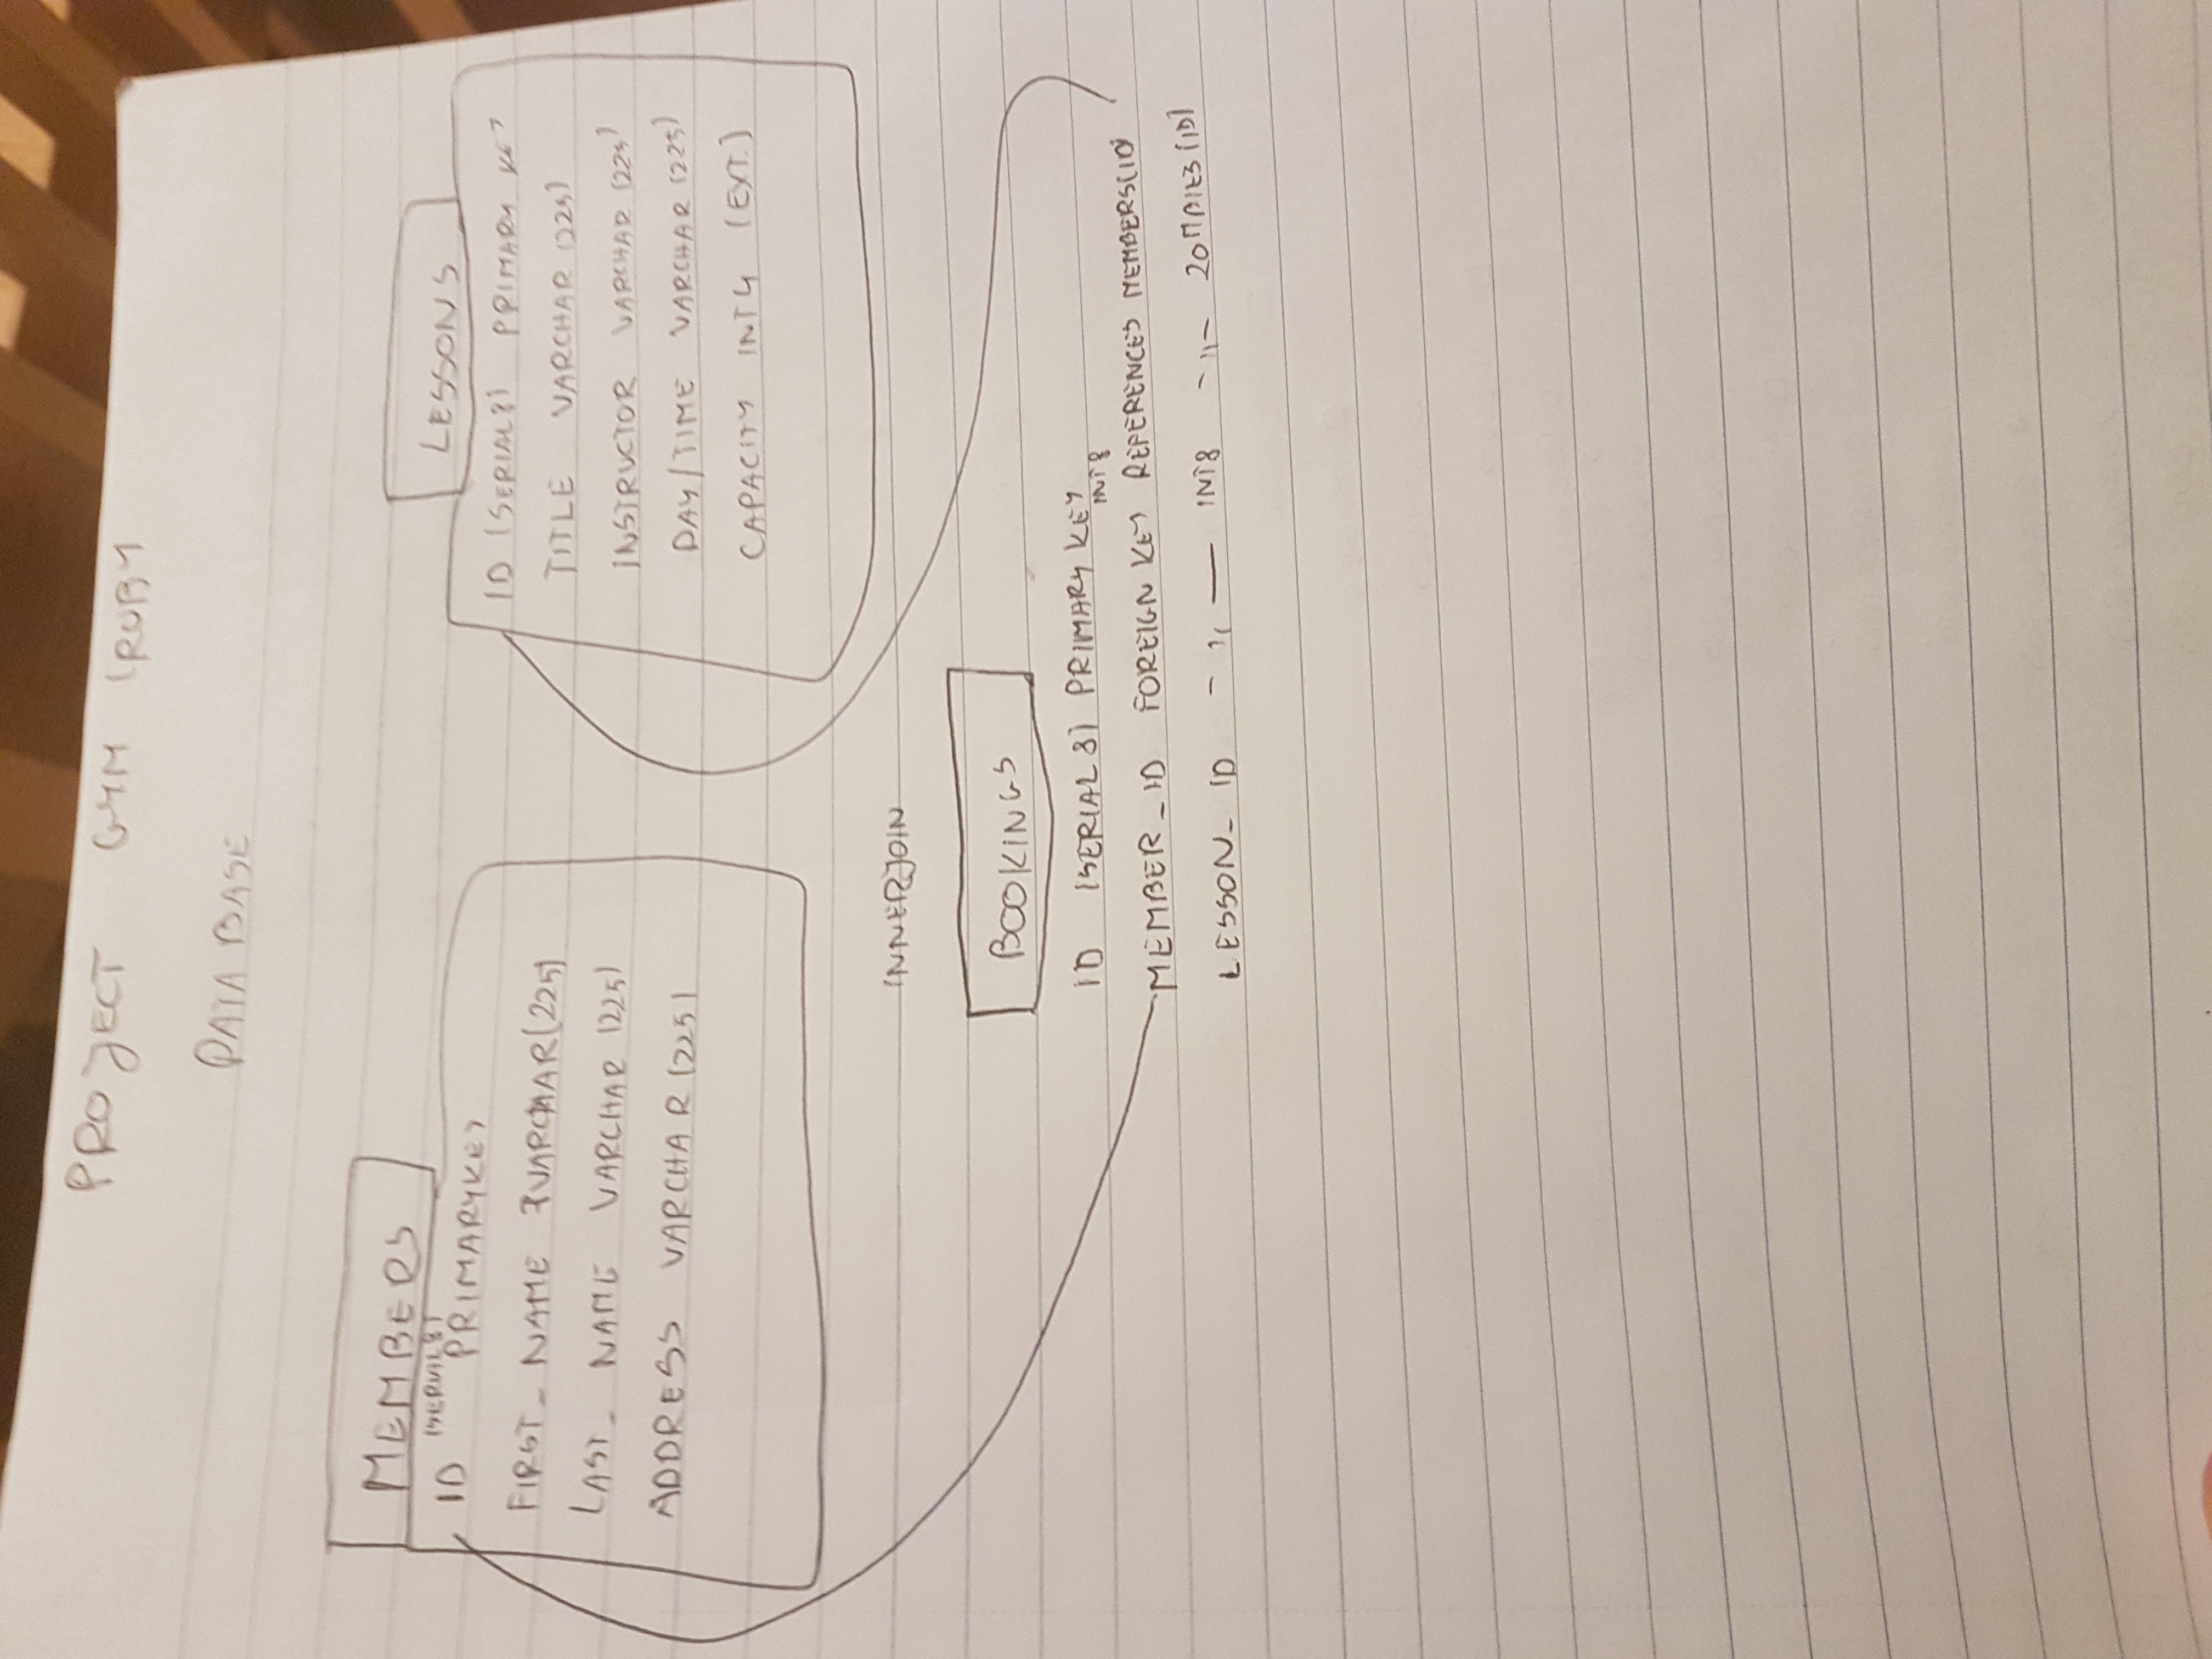 PROJECT GYM (RUBY
DATA BASE
MEMBERS
ID (SERIAL8) PRIMARYKEY
FIRST_ NAME VARCHAR(225)
LAST_ NAME VARCHAR (225)
ADDRESS VARCHAR (225)
LESSONS
ID (SERIAL8) PRIMARY KEY
TITLE VARCHAR (225)
INSTRUCTOR VARCHAR (225)
DAY/TIME VARCHAR (225)
CAPACITY INT4 (EXT.)
INNERJOIN
BOOKINGS
ID (SERIAL 8) PRIMARY KEY
INT8
MEMBER_ID FOREIGN KEY REFERENCES MEMBERS(ID)
LESSON_ ID - ,, — INT8 - ,, - ZOMBIES (ID)